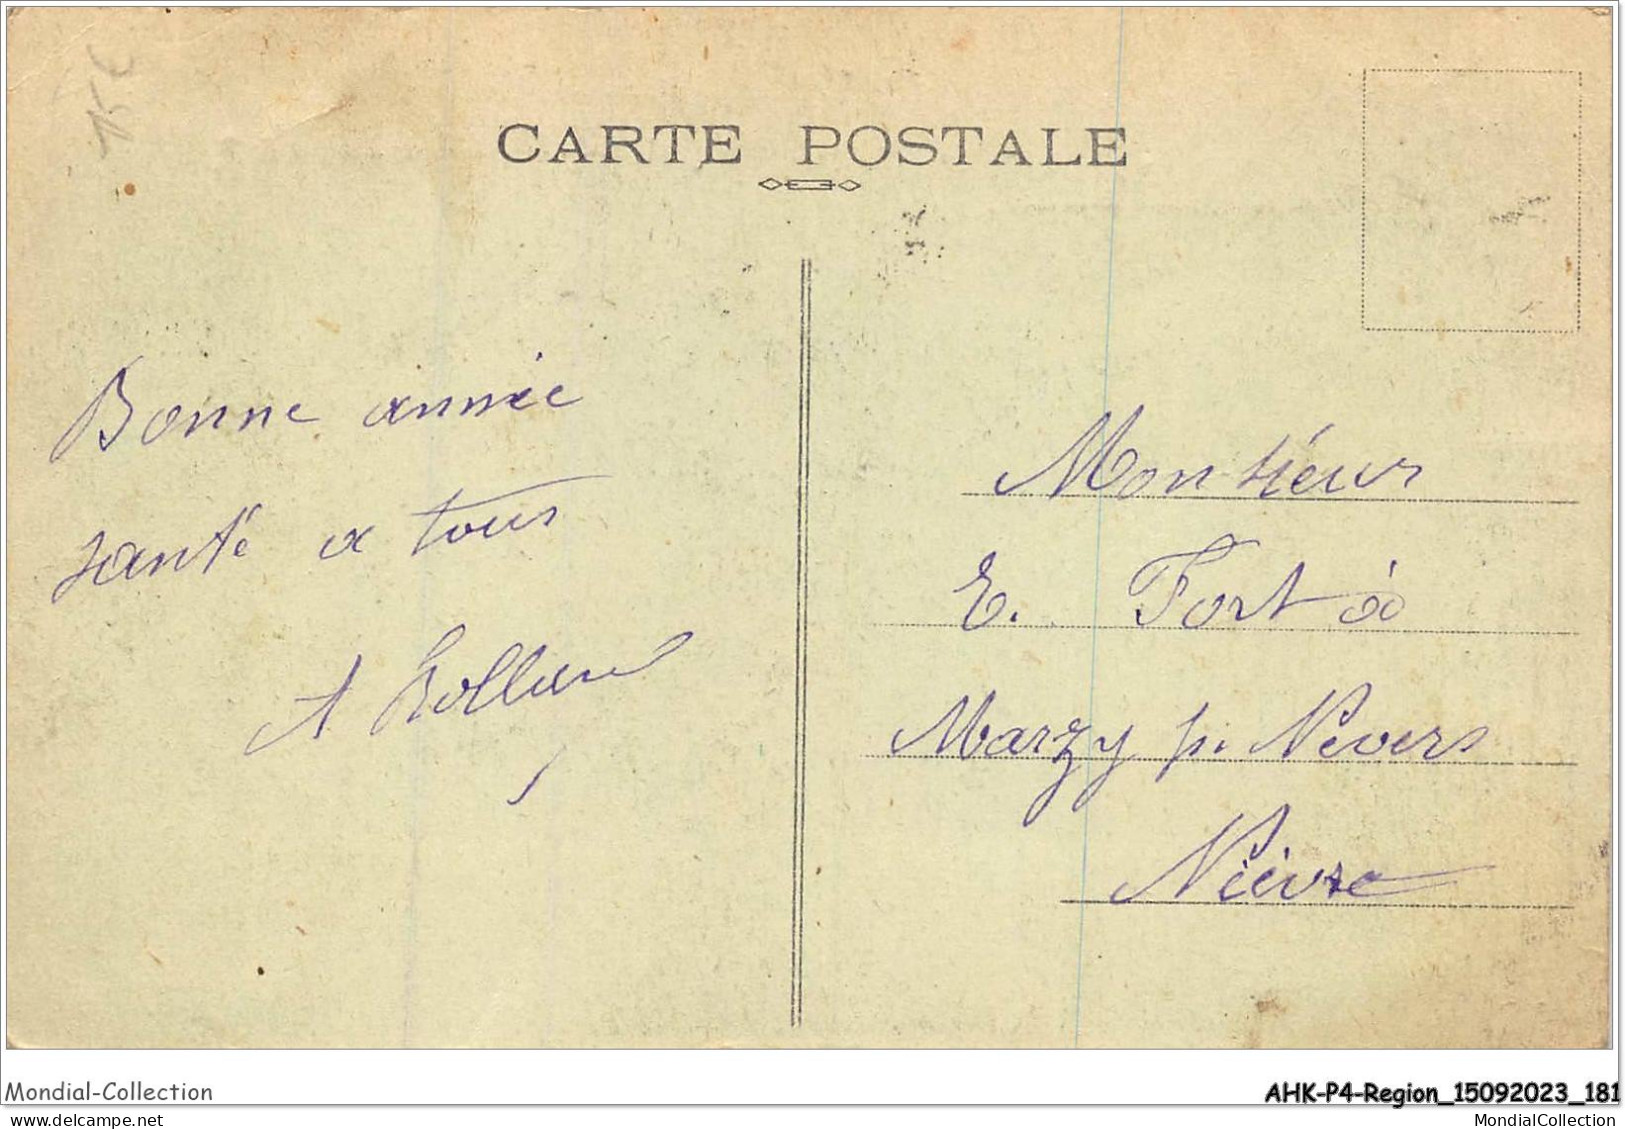 CARTE POSTALE
Bonne année
santé a tous
A
Monsieur
E. Fort à
Marzy p. Nevers
Nièvre
Mondial-Collection
AHK-P4-Region_15092023_181
MondialCollection
MondialCollection